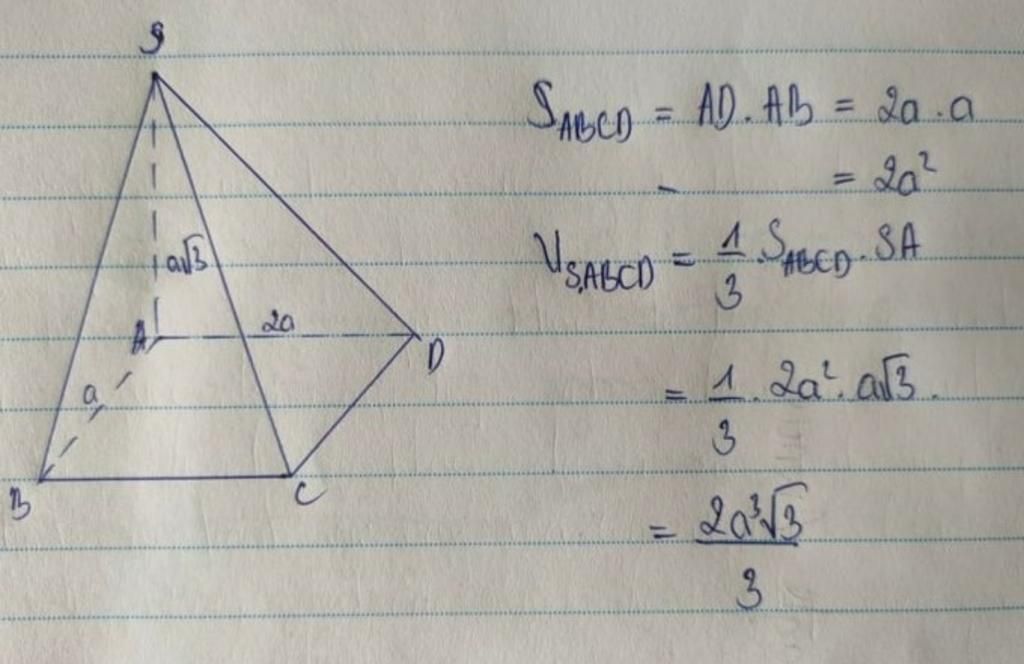 S
a√3
A
2a
D
a
B
C
S_ABCD = AD . AB = 2a . a
= 2a²
V_S.ABCD = 1/3 . S_ABCD . SA
= 1/3 . 2a² . a√3 .
= 2a³√3 / 3